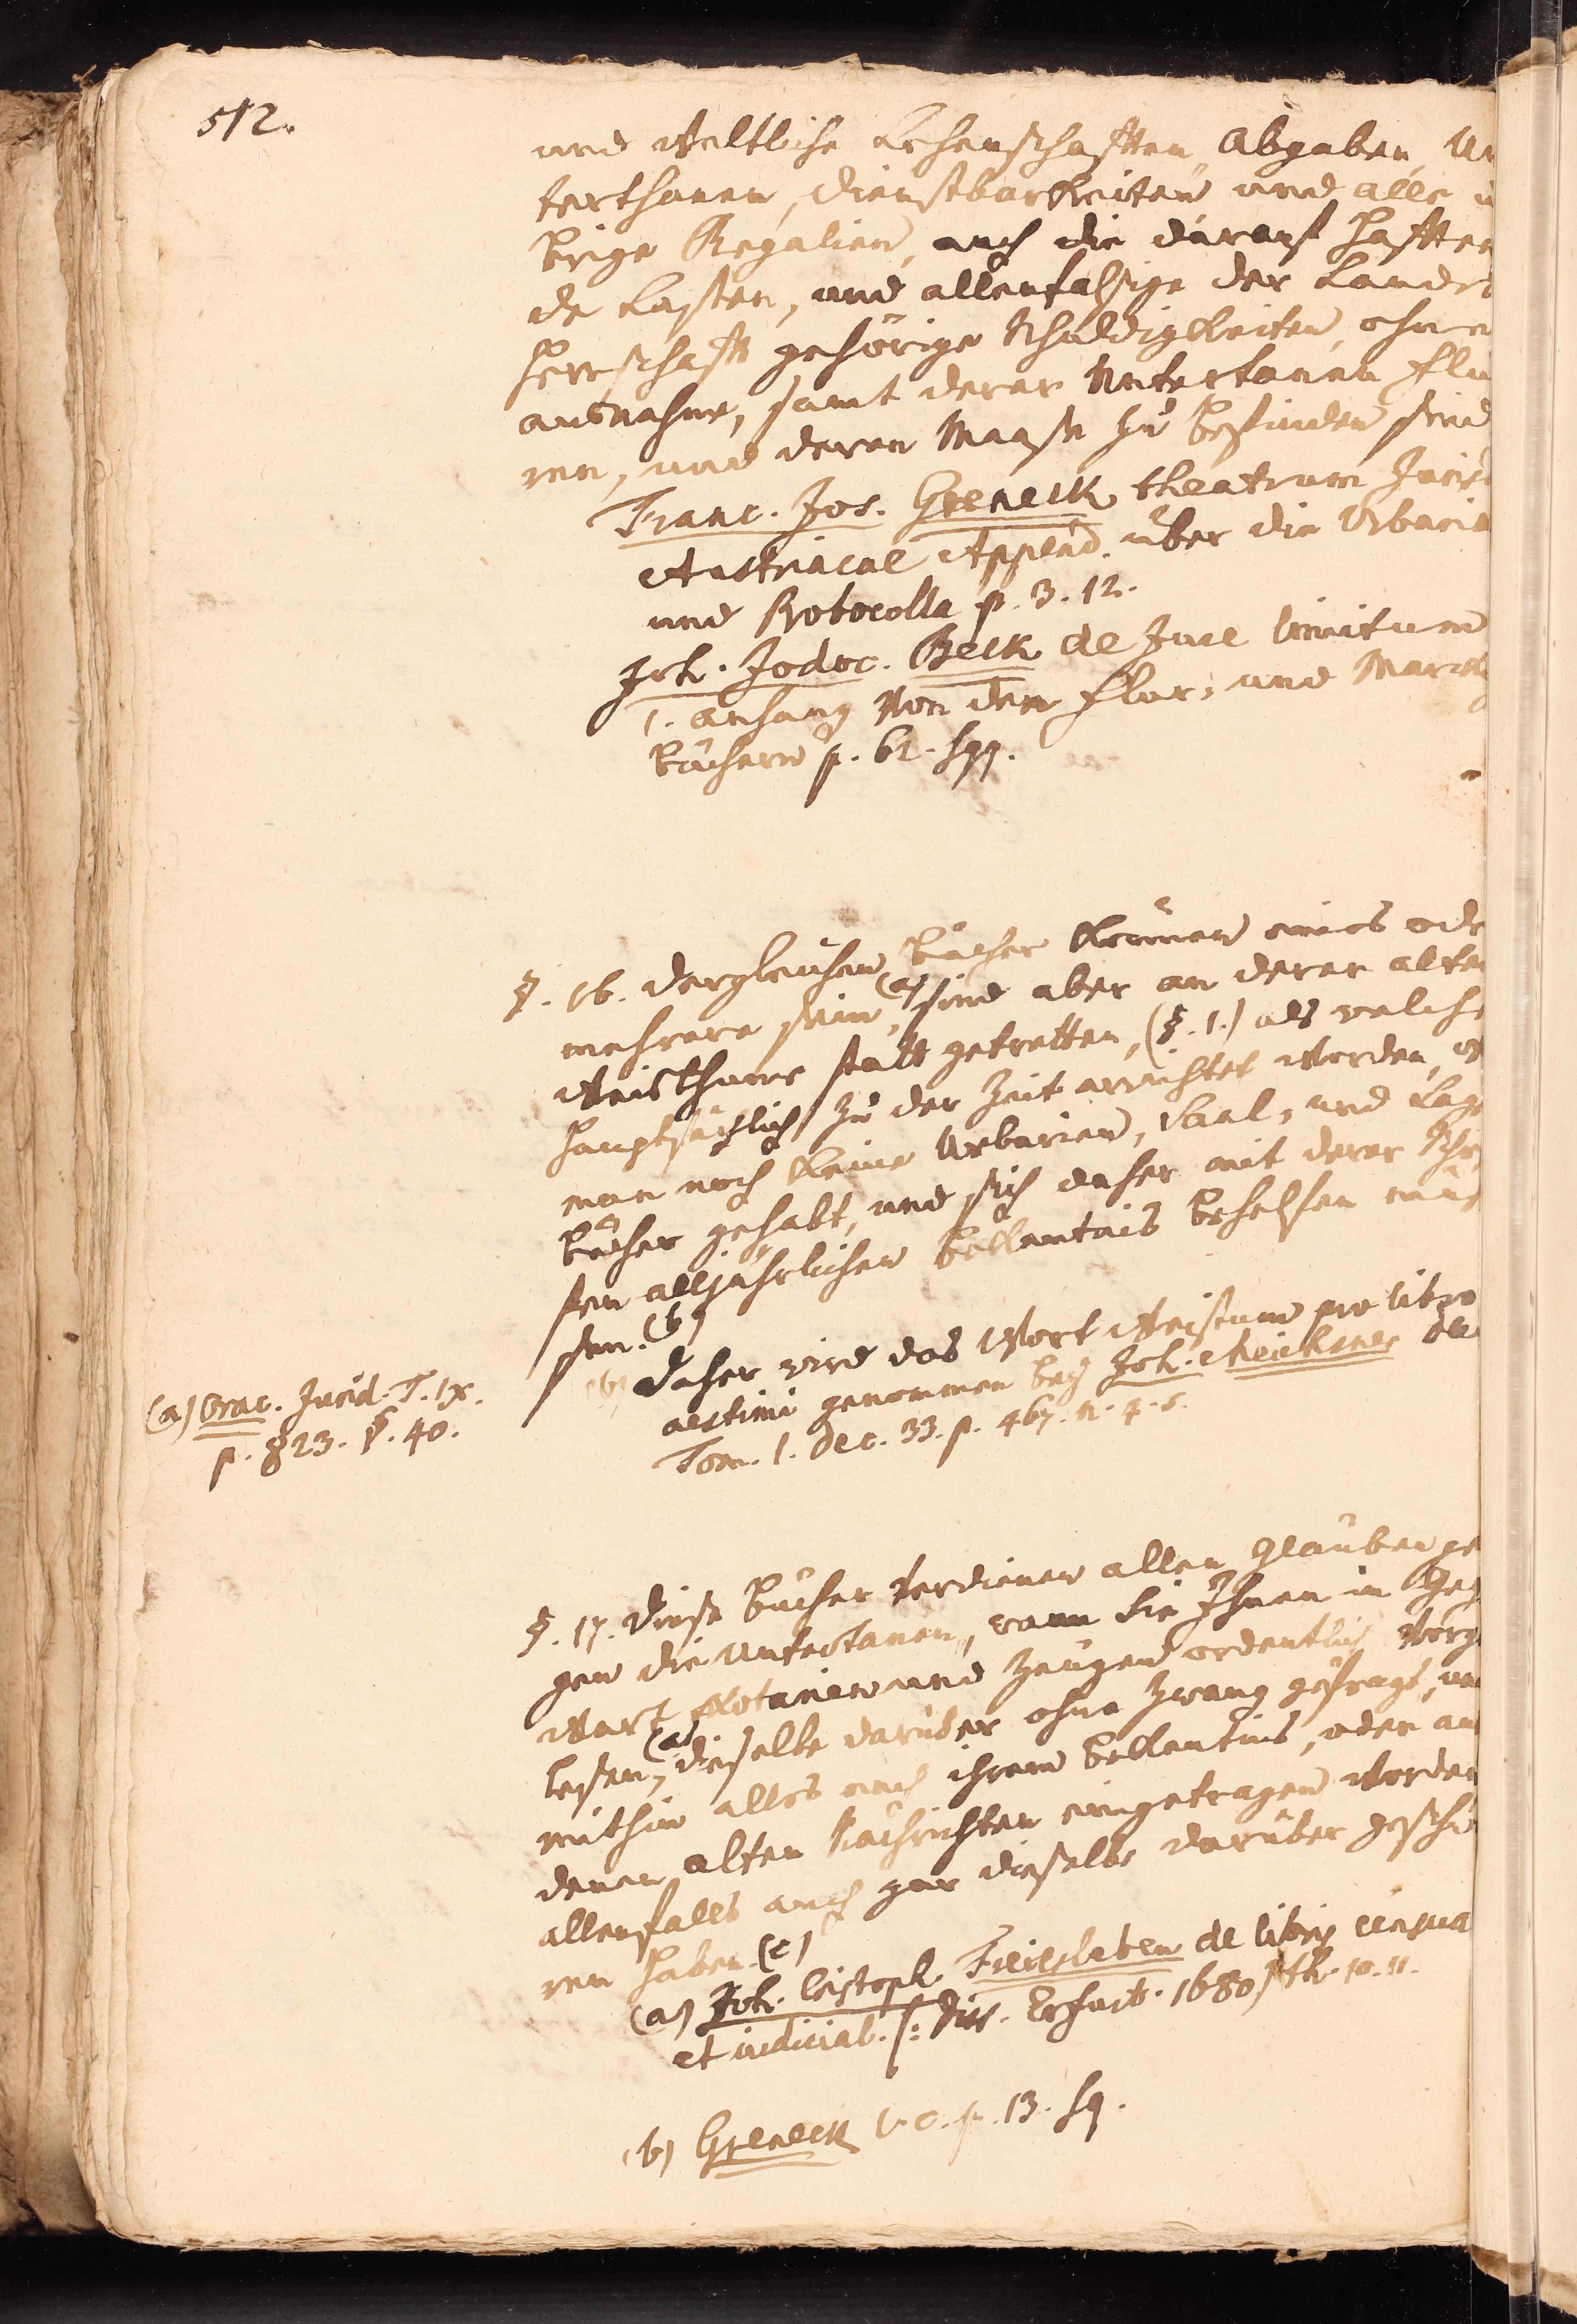 512.
und Weltliche Lehenschafften, Abgaben, Un
terthanen, Dienstbarkeiten und alle ü
brige Regalien, auch die darauf hafften
de Lasten, und allenfalsige der Lands
herrschaft gehörige Schuldigkeiten, ohne
ausnahme, samt derer Untertanen Flu
ren, und deren Maase zu befinden sind
Franc. Jos. Greneck theatrum Juris
Austriacae Append. über die Urbaria
und Protocolla p. 3. 12.
Joh. Jodoc. Beck de Jure limitum
1. anhang Von den Flur- und Marck
büchern p. 62. sqq.
§. 16. dergleichen Bücher können eines ode
mehrere sein, (a) sind aber an derer alten
Weisthume statt getretten, (§. 1.) als welche
hauptsächlich zu der Zeit errichtet worden,
man noch keine Urbarien, Saal- und Lager
bücher gehabt, und sich daher mit derer Schöp
fen alljährlichen bekantnis behelfen müs
sen. (b)
(b) Daher wird das Wort Weistum pro libro
aestimi genommen bey Joh. Meichsner de
Tom. 1. Dec. 33. p. 467. n. 4. 5.
(a) Orac. Jurid. T. IX.
p. 823. §. 40.
§. 17. Diese Bücher verdienen allen Glauben ge
gen die Untertanen, wann sie Ihnen in Geg
wart Notarien und Zeugen ordentlich vorge
lesen, (a) dieselbe darüber ohne Zwang gefragt, und
mithin alles nach ihrem bekantnis, oder aus
denen alten Nachrichten eingetragen worden
allenfalls auch gar dieselbe darüber geschwo
ren haben. (c)
(a) Joh. Cristoph. Freiesleben de libris censual
et iudicial. /: diss. Erfurt. 1680 / th. 10. 11.
(b) Greneck l. c. p. 13. sq.